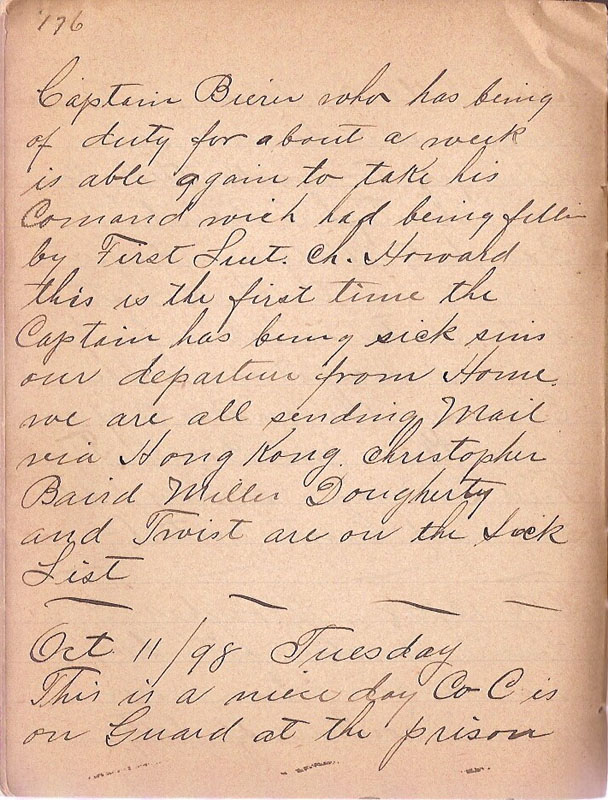 176
Captain Bierer who has being
of duty for about a week
is able again to take his
Comand wich had being fillin
by First Lieut. Ch. Howard
this is the first time the
Captain has being sick sins
our departure from Home.
we are all sending Mail
via Hong Kong. Christopher
Baird Miller Dougherty
and Twist are on the Sick
List
Oct 11/98 Tuesday
This is a nice day Co C is
on Guard at the prison